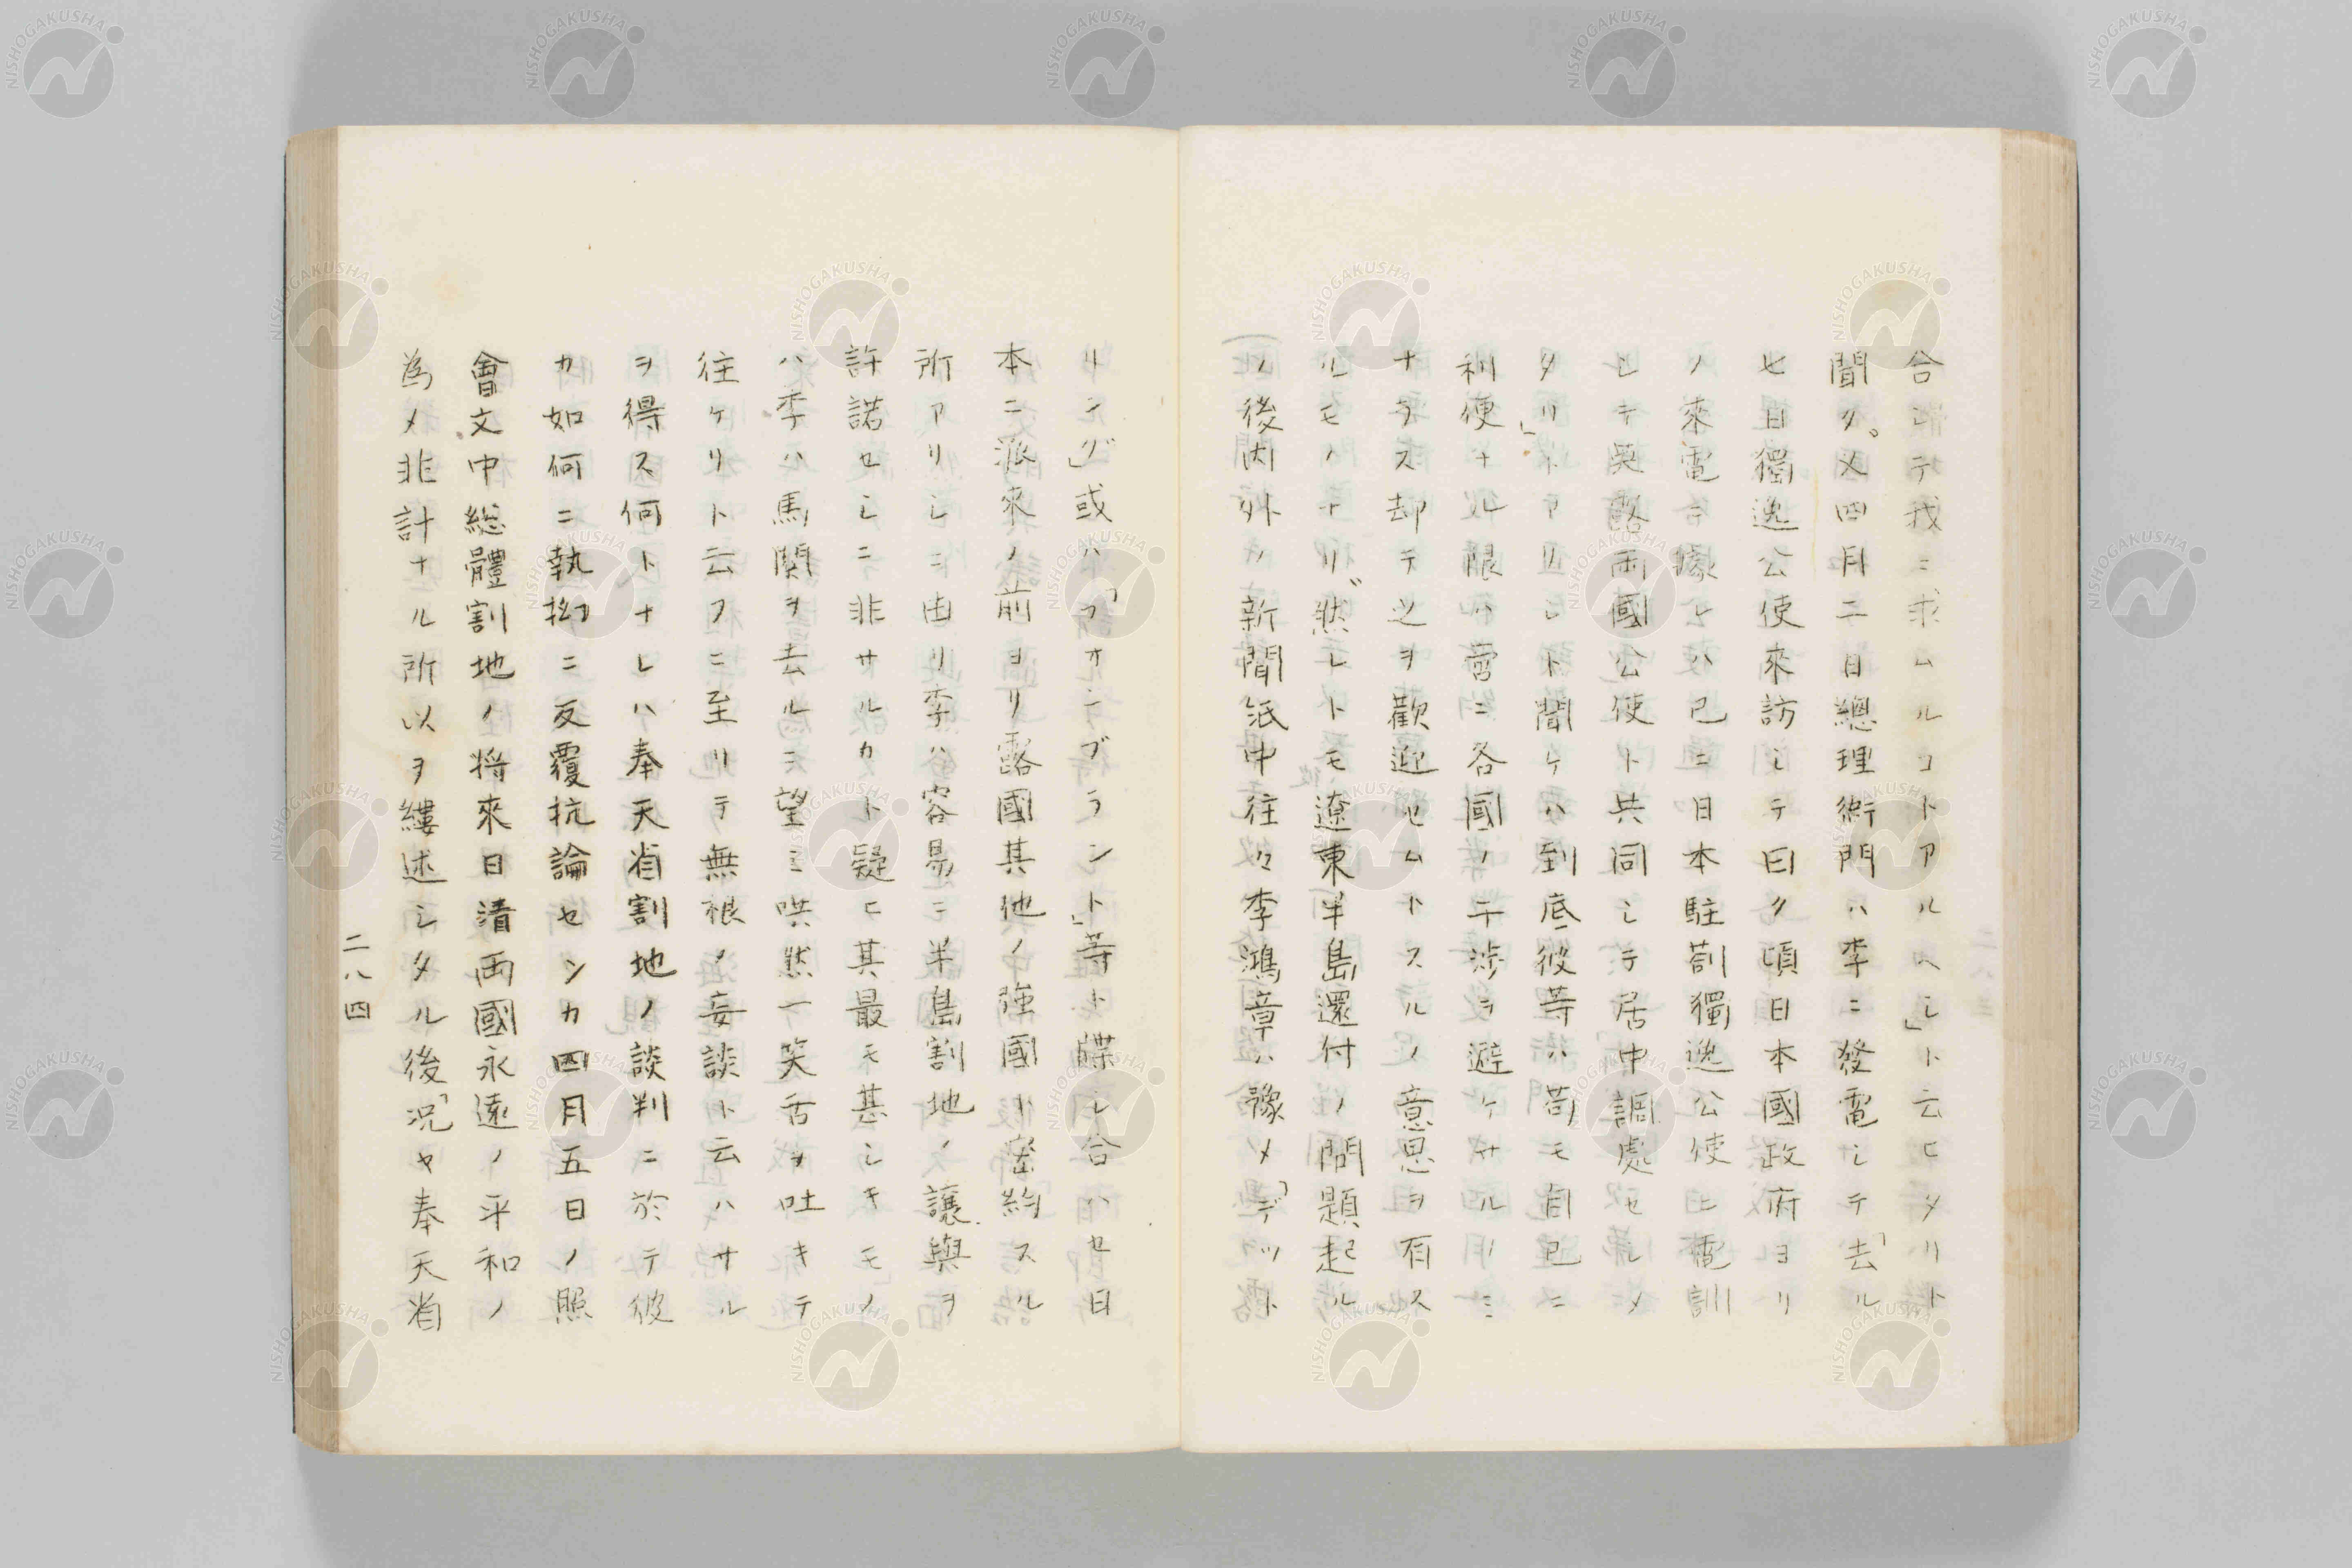 合シテ我ニ求ムルコトアルヘシ」ト云ヒタリト
聞ク。又四月二日總理衙門ハ李ニ發電シテ「去ル
七日獨逸公使來訪シテ曰ク頃日本國政府ヨリ
ノ來電ニ據レハ已ニ日本駐剳獨逸公使ニ電訓
シテ英露両國公使ト共同シテ居中調處セシメ
タリ」トアリシト聞ケハ到底彼等ハ苟モ自己ニ
利便ナル限ハ啻ニ各國ノ干渉ヲ避ケサルノミ
ナラス却テ之ヲ歡迎セムトスルノ意思ヲ有ス
ルモノナリ然レトモ遼東半島還付ノ問題起ル
ノ後内外ノ新聞紙中往々李鴻章ハ豫メ「デット
リング」或ハ「フオンブラント」等ト諜シ合ハセ日
本ニ派來ノ前ヨリ露國其他ノ強國ト密約スル
所アリシニ由リ李ハ容易ニ半島割地ノ讓與ヲ
許諾セシニ非サルカト疑ヒ其最モ甚シキモノ
ハ李ハ馬関ヲ去ルニ望ミ哄然一笑舌ヲ吐キテ
往ケリト云フニ至リテ無根ノ妄談ト云ハサル
ヲ得ス何トナレハ奉天省割地ノ談判ニ於テ彼
カ如何ニ執拗ニ反覆抗論センカ四月五日ノ照
會文中総體割地ノ将來日清両國永遠ノ平和ノ
為メ非計ナル所以ヲ縷述シタル後「況ヤ奉天省
二八四
NISHOGAKUSHA